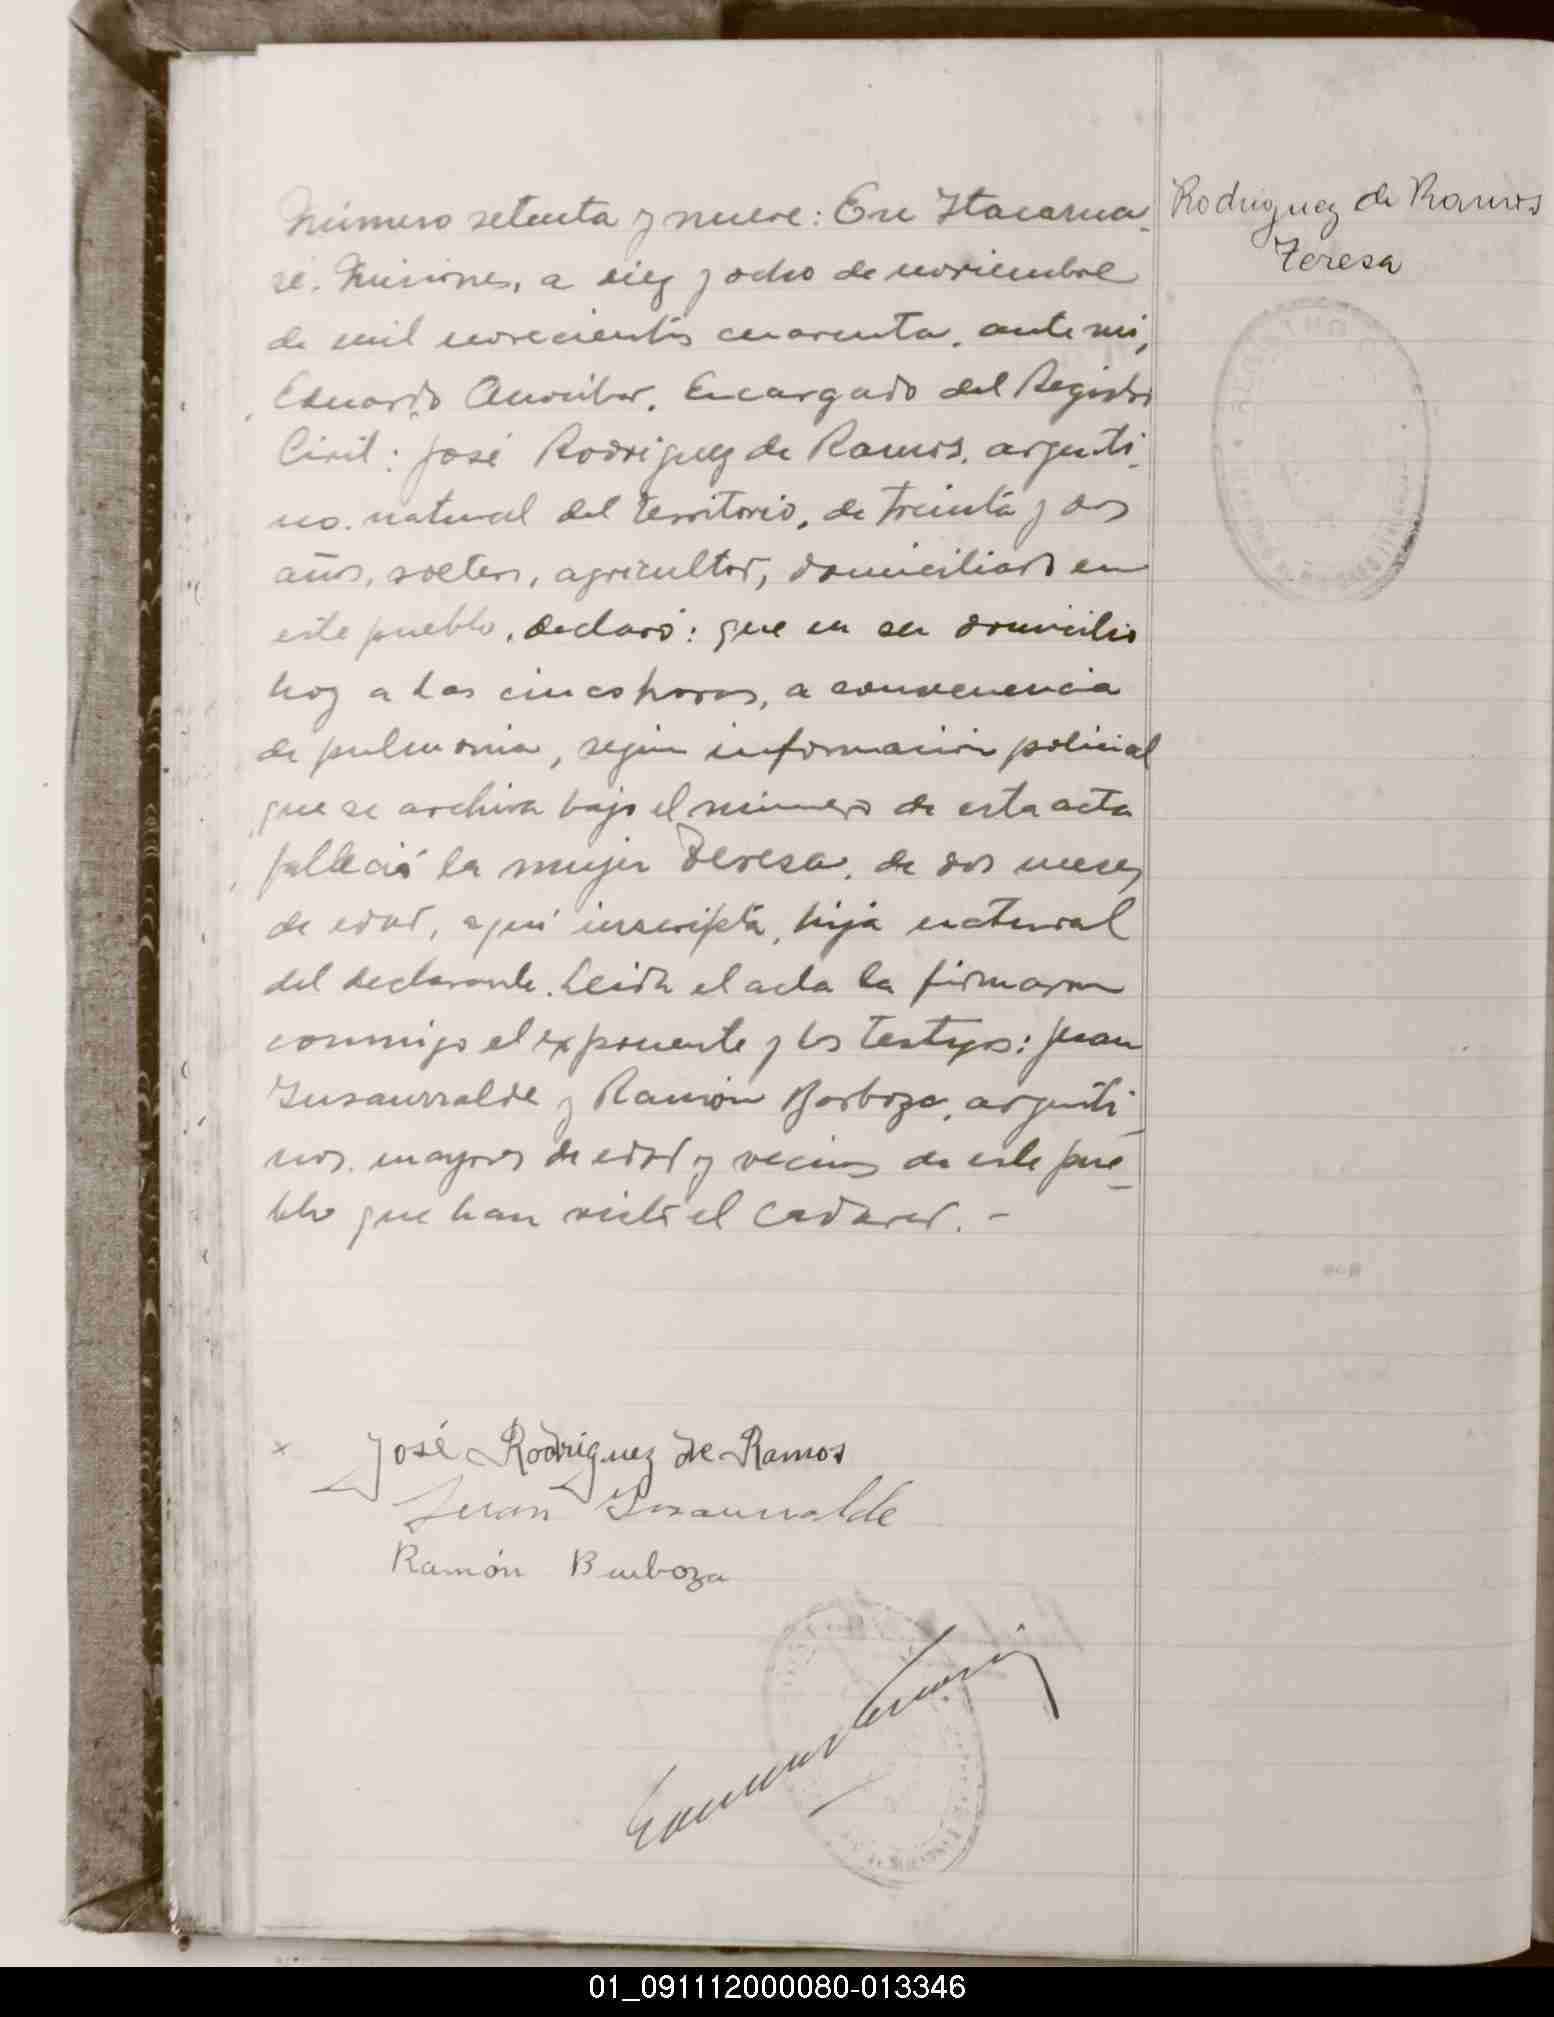 Número setenta y nueve: En Itacarua-
ré. Misiones, a diez y ocho de noviembre
de mil novecientos cuarenta, ante mi,
Eduardo Encargado del Registro
Civil: José Rodriguez de Ramos, argenti-
no. natural del territorio, de treinta y dos
años, soltero, agricultor, domiciliado en
este pueblo, declaró: que en su domicilio
hoy a las cinco horas, a consecuencia
de pulmonia, según información policial
que se archiva bajo el número de esta acta
falleció la mujer Teresa, de dos meses
de edad, aquí inscripta, hija natural
del declarante. Leida el acta la firmaron
conmigo el exponente y los testigos: Juan
Insaurralde y Ramón Barboza, argenti-
nos. mayores de edad y vecinos de este pue-
blo que han visto el cadaver. -
Rodriguez de Ramos
Teresa
x José Rodriguez de Ramos
Juan Insaurralde
Ramón Barboza
01_091112000080-013346